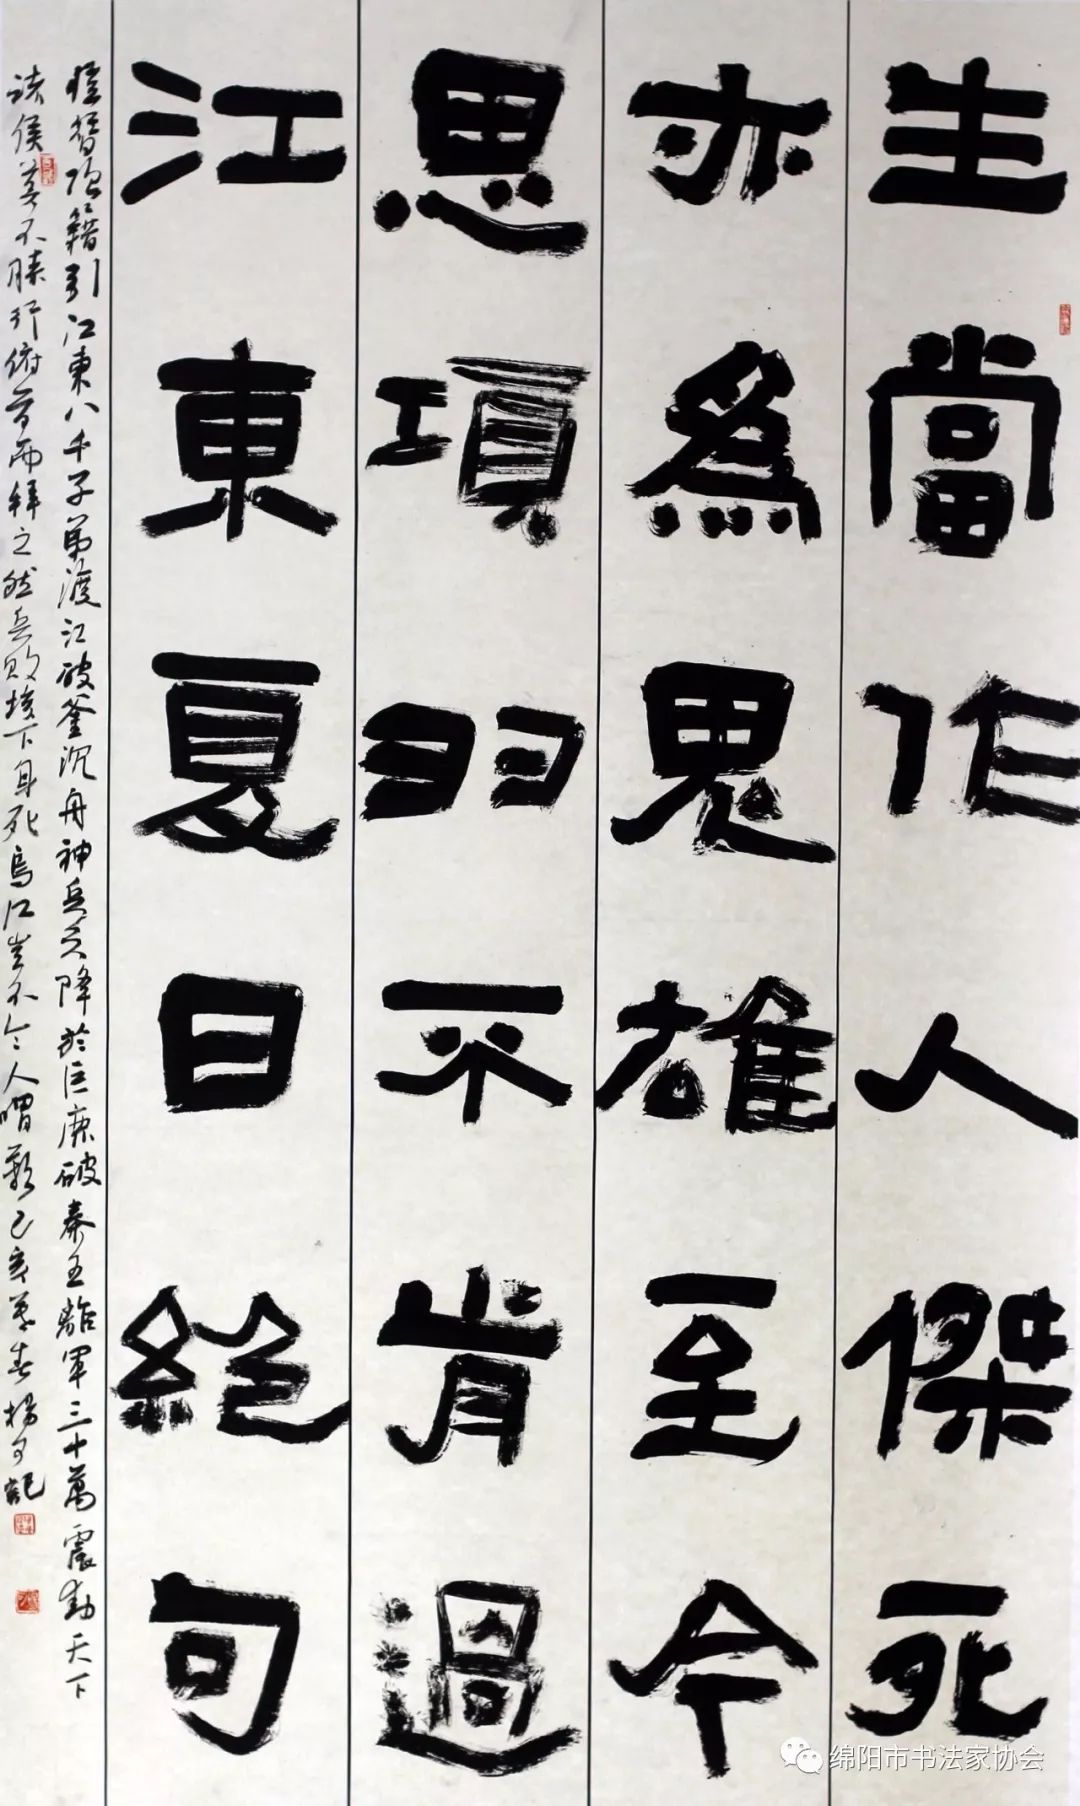 生當作人傑死
亦為鬼雄至今
思項羽不肯過
江東夏日絕句
項籍引江東八千子弟渡江破釜沉舟神兵天降於巨鹿破秦王離軍三十萬震動天下
諸侯莫不膝行俯首而拜之然兵敗垓下身死烏江豈不令人喟歎己亥暮春楊可記
绵阳市书法家协会